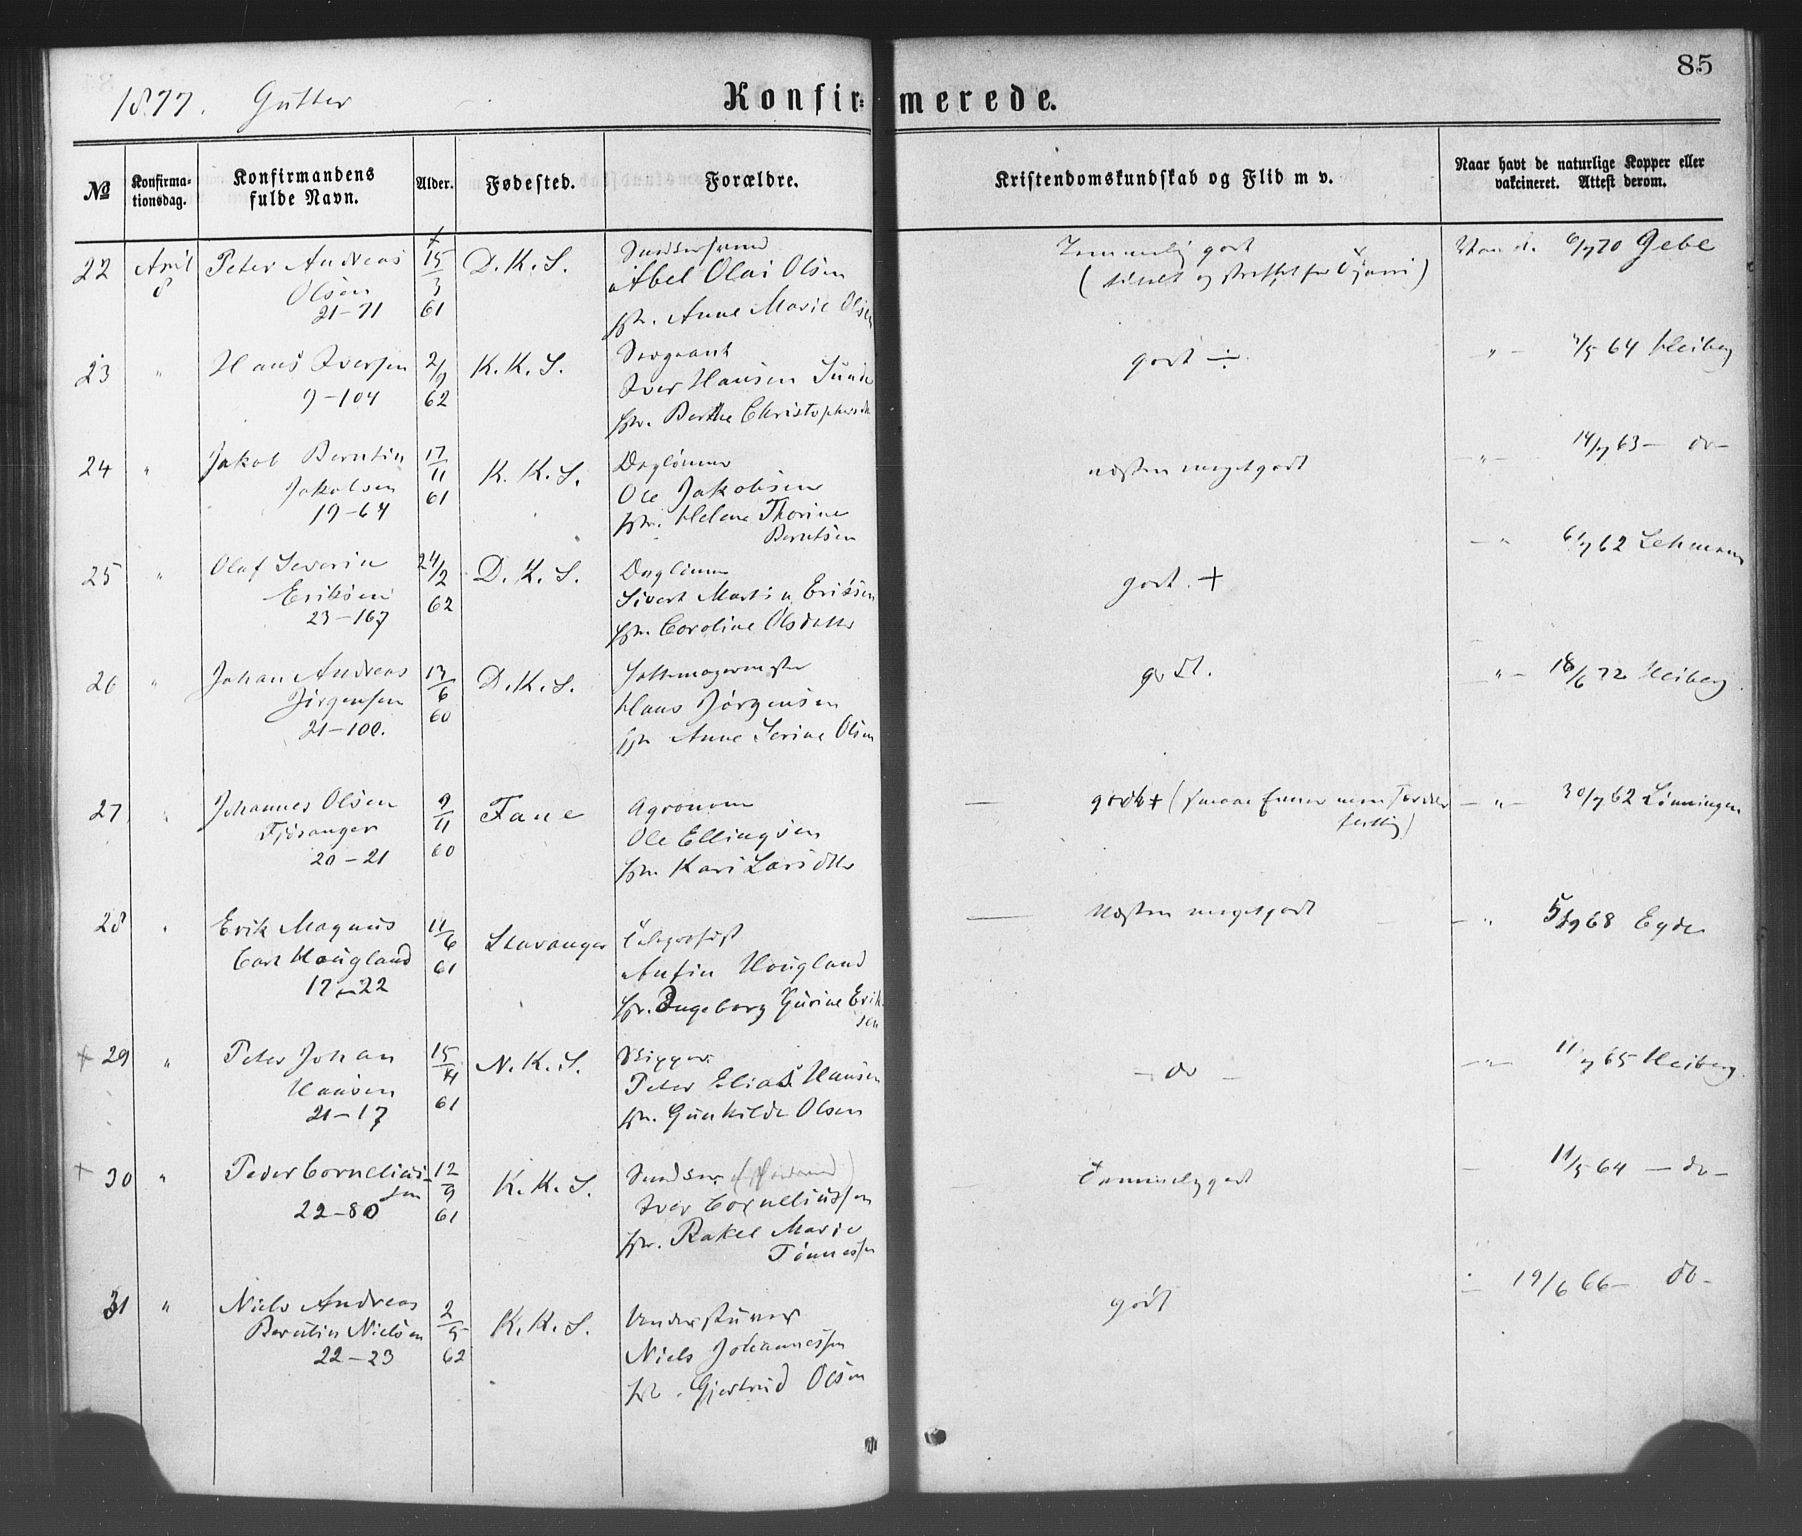 85
1877. Gutter
Konfirmerede.
No
Konfirma-
tionsdag.
Konfirmandens
fulde Navn.
Alder.
Fødested.
Forældre.
Kristendomskundskab og Flid m v.
Naar havt de naturlige Kopper eller
vakcineret. Attest derom.
22 April 8
Peter Andreas
Olsen
21-71
15/3 61
D. K. S.
Abel Olai Olsen
Anne Marie Olsen
Temmelig godt
6/7 70 Gebe
23 "
Hans Iversen
9-104
2/9 62
K. K. S.
Sergeant
Iver Hansen Sunde
Berthe Christophersdt
godt ÷
" 64 Heiberg
24 "
Jakob Berntin
Jakobsen
19-64
17/11 61
K. K. S.
Daglønner
Ole Jakobsen
Helene Thorine
Berntsen
næsten meget godt
" 14/7 63 - do -
25 "
Olaf Severin
Eriksen
23-167
24/2 62
D. K. S.
Daglønner
Sivert Martin Eriksen
Caroline Olsdatter
godt. +
" 62 Lehmann
26 "
Johan Andreas
Jörgensen
21-100.
13/6 60
D. K. S.
Hans Jørgensen
Anne Serine Olsen
godt.
" 18/6 72 Heiberg
27 "
Johannes Olsen
Fjösanger
20-21
9/11 60
Fane
Agronom
Ole Ellingsen
Kari Larsdtr
godt +
" 30/7 62 Lönningen
28 "
Erik Magnus
Carl Hougland
17-22
11/6 61
Stavanger
Telegrafist
Anfin Hougland
Ingeborg Gurine Erik
sen
Næsten meget godt
" 68 Egde
+ 29 "
Peter Johan
Hansen
21-17
15/4 61
N. K. S.
Rigger
Peter Elias Hansen
Gunhilde Olsen
- do -
" 11/7 65 Heiberg.
+ 30 "
Peder Cornelius-
sen
22-80
12/9 61
K. K. S.
Iver Corneliussen
Rakel Marie
Tönnessen
Temmelig godt
11/5 64 - do -
31 "
Niels Andreas
Berntin Nielsen
22-23
2/5 62
K. K. S.
Understurer
Niels Johannessen
Gjertrud Olsen
godt
19/6 66 - do -